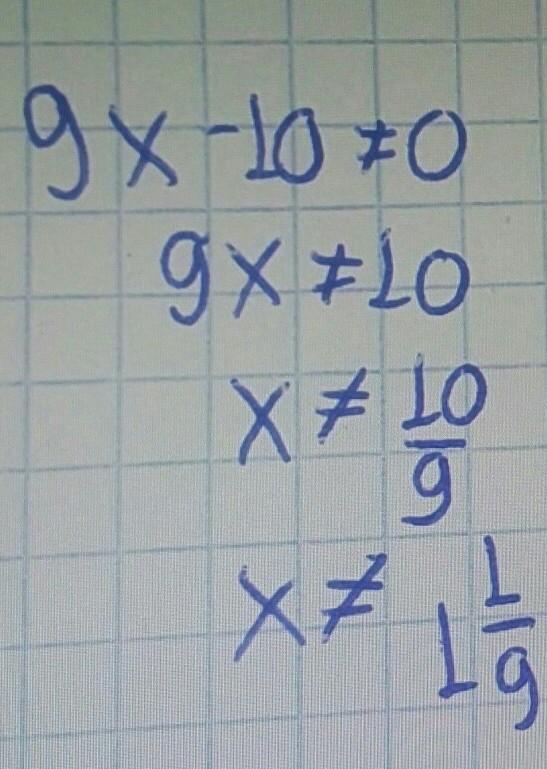 9x - 10 ≠ 0
9x ≠ 10
x ≠ 10/9
x ≠ 1 1/9